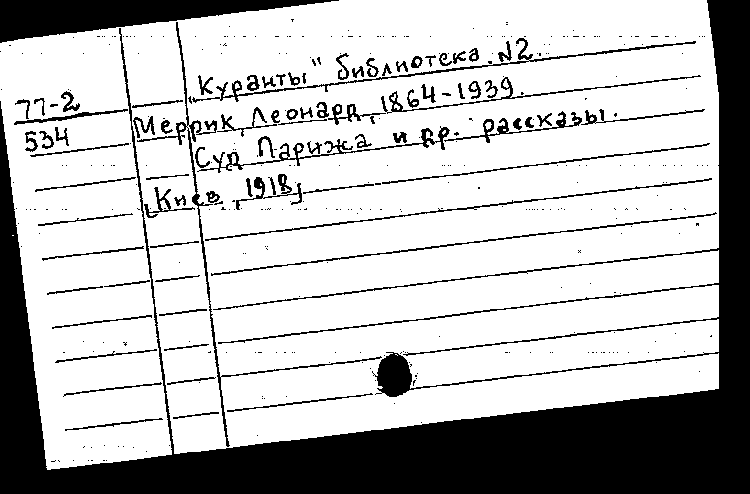 "Куранты", библиотека. N2.
77-2
534
Меррик, Леонард, 1864-1939.
Суд Парижа и др. рассказы.
[Киев, 1918]